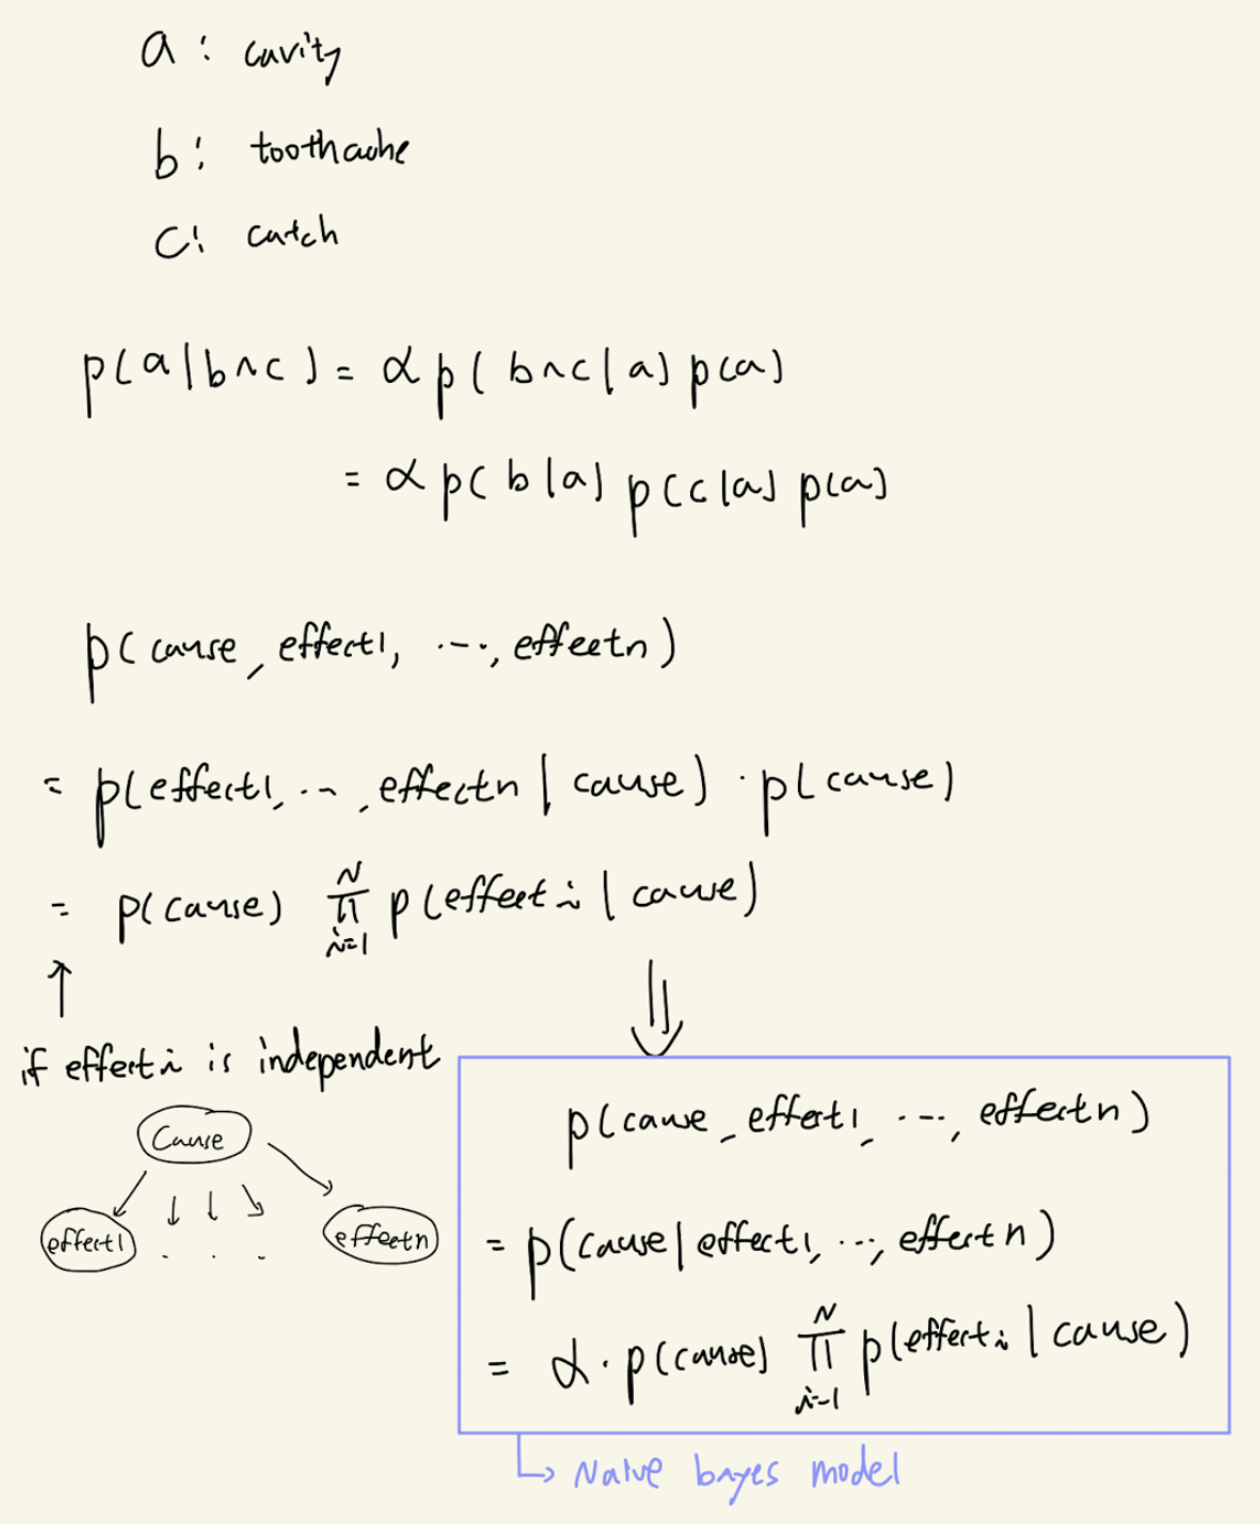 a : cavity
b : toothache
c : catch
p(a|b∧c) = α p(b∧c|a) p(a)
= α p(b|a) p(c|a) p(a)
p(cause, effect1, ..., effectn)
= p(effect1, ..., effectn | cause) · p(cause)
= p(cause) ∏ᵢ₌₁ᴺ p(effect i | cause)
↑
if effect i is independent
⇓
Cause
effect1 . . . effectn
p(cause, effect1, ..., effectn)
= p(cause | effect1, ..., effectn)
= α · p(cause) ∏ᵢ₌₁ᴺ p(effect i | cause)
↳ Naive bayes model